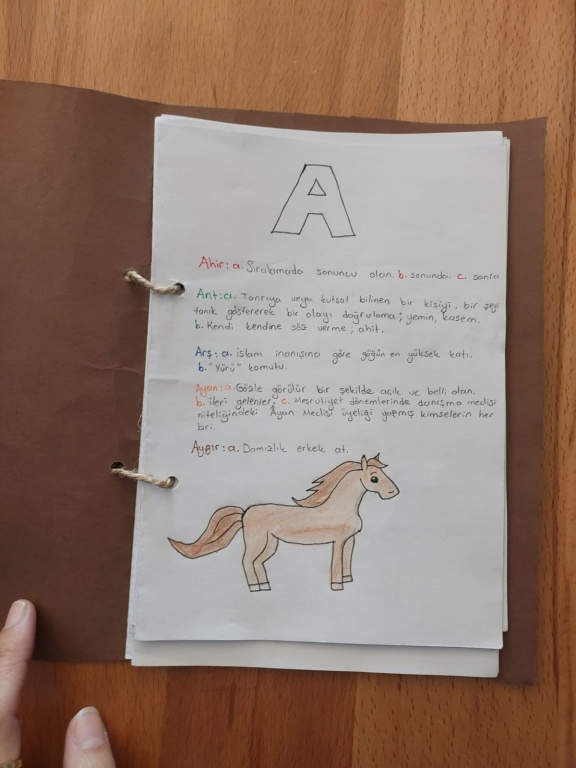 A
Ahir: a. Sıralamada sonuncu olan. b. sonunda. c. sonra.
Ant: a. Tanrıya veya kutsal bilinen bir kişiyi, bir şeyi
tanık göstererek bir olayı doğrulama; yemin, kasem.
b. Kendi kendine söz verme; ahit.
Arş: a. islam inanışına göre göğün en yüksek katı.
b. "Yürü" komutu.
Ayan: a. Gözle görülür bir şekilde açık ve belli olan.
b. ileri gelenler. c. Meşrutiyet dönemlerinde danışma meclisi
niteliğindeki Âyan Meclisi üyeliği yapmış kimselerin her
biri.
Aygır: a. Damızlık erkek at.